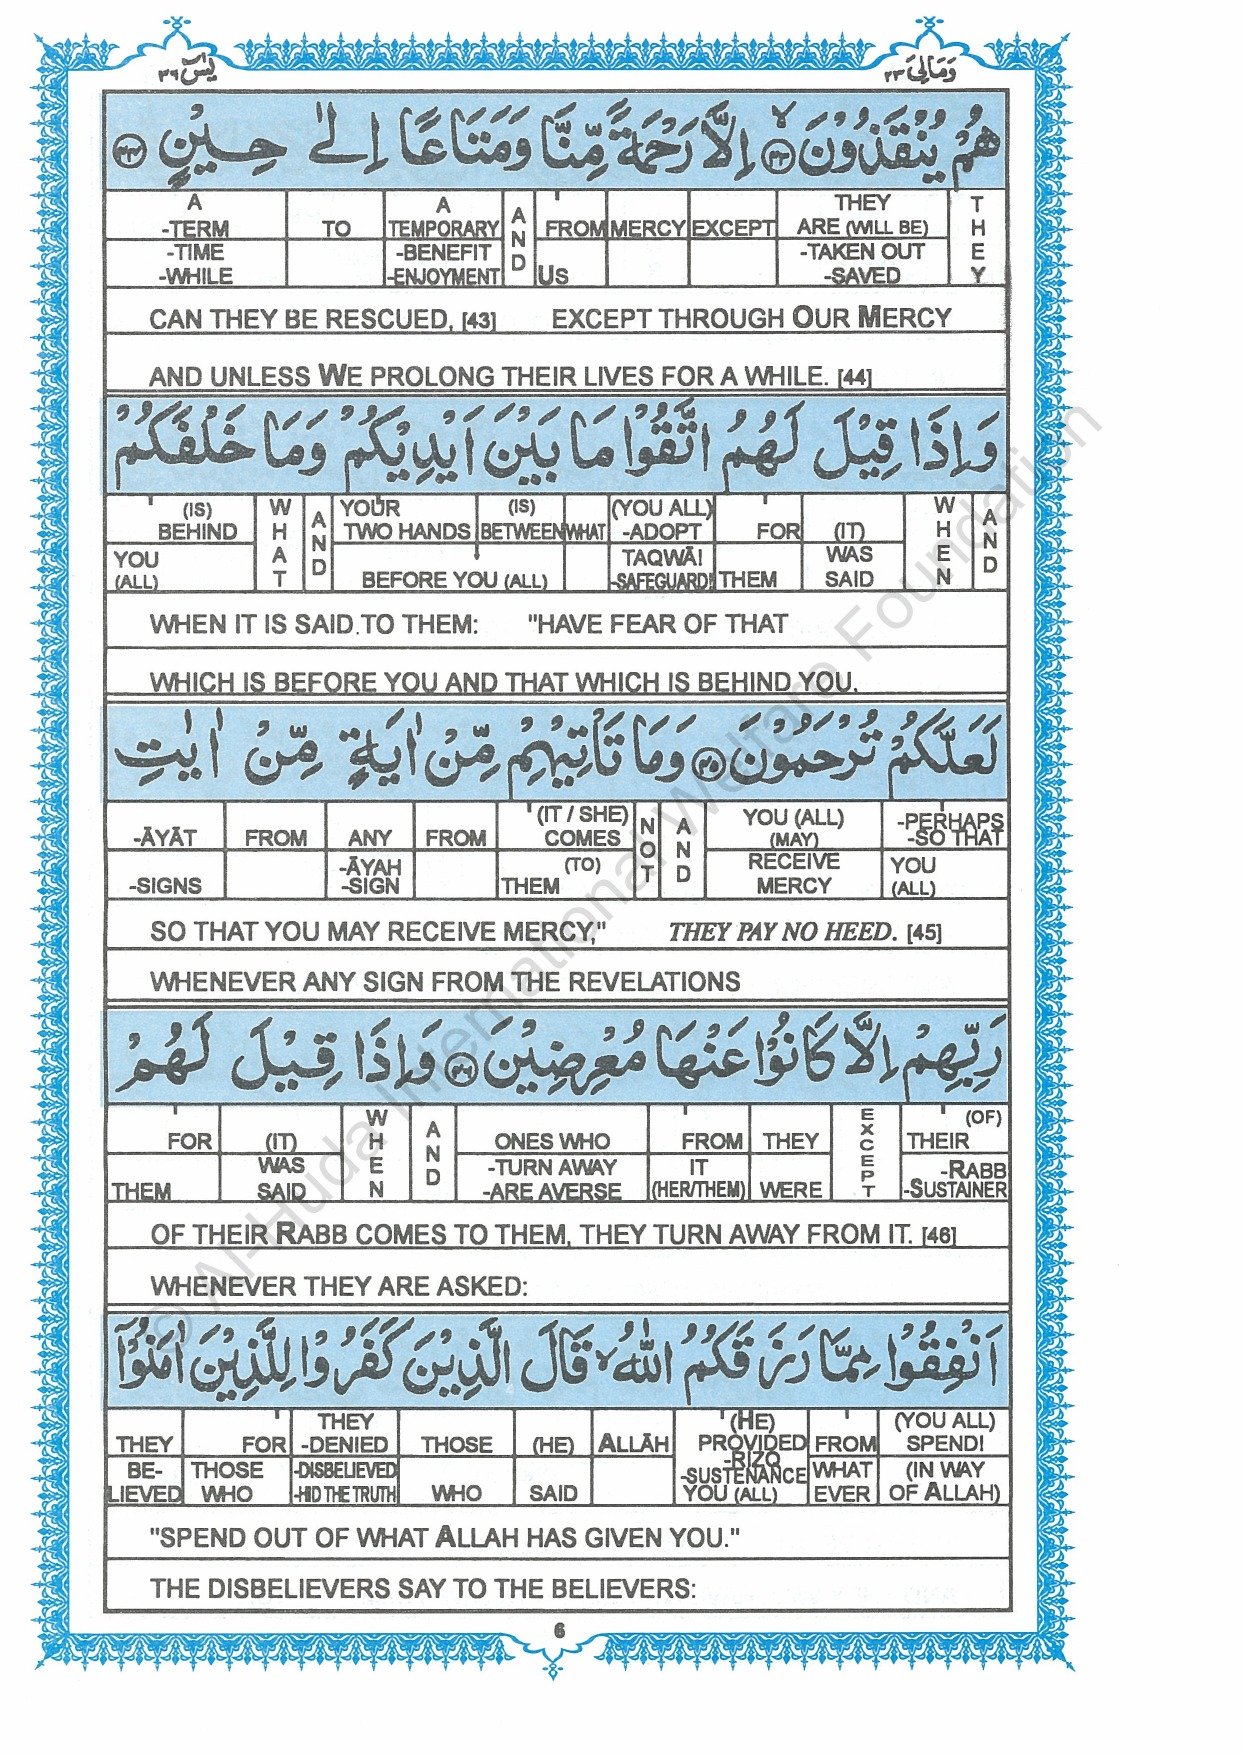 يٰسٓ ٣٦ وَمَالِىَ ٢٣
هُمْ يُنْقَذُوْنَ ۙ ٤٣ اِلَّا رَحْمَةً مِّنَّا وَمَتَاعًا اِلٰى حِيْنٍ ٤٤
A -TERM -TIME -WHILE | TO | A TEMPORARY -BENEFIT -ENJOYMENT | AND | FROM US | MERCY | EXCEPT | THEY ARE (WILL BE) -TAKEN OUT -SAVED | THEY
CAN THEY BE RESCUED, [43] EXCEPT THROUGH OUR MERCY
AND UNLESS WE PROLONG THEIR LIVES FOR A WHILE. [44]
وَاِذَا قِيْلَ لَهُمُ اتَّقُوْا مَا بَيْنَ اَيْدِيْكُمْ وَمَا خَلْفَكُمْ
(IS) BEHIND YOU (ALL) | WHAT | AND | YOUR TWO HANDS | (IS) BETWEEN | BEFORE YOU (ALL) | WHAT | (YOU ALL) -ADOPT TAQWĀ! -SAFEGUARD! | FOR THEM | (IT) WAS SAID | WHEN | AND
WHEN IT IS SAID TO THEM: "HAVE FEAR OF THAT
WHICH IS BEFORE YOU AND THAT WHICH IS BEHIND YOU,
لَعَلَّكُمْ تُرْحَمُوْنَ ٤٥ وَمَا تَاْتِيْهِمْ مِّنْ اٰيَةٍ مِّنْ اٰيٰتِ
-ĀYĀT -SIGNS | FROM | ANY -ĀYAH -SIGN | FROM | (IT / SHE) COMES (TO) THEM | NOT | AND | YOU (ALL) (MAY) RECEIVE MERCY | -PERHAPS -SO THAT YOU (ALL)
SO THAT YOU MAY RECEIVE MERCY," THEY PAY NO HEED. [45]
WHENEVER ANY SIGN FROM THE REVELATIONS
رَبِّهِمْ اِلَّا كَانُوْا عَنْهَا مُعْرِضِيْنَ ٤٦ وَاِذَا قِيْلَ لَهُمْ
FOR THEM | (IT) WAS SAID | WHEN | AND | ONES WHO -TURN AWAY -ARE AVERSE | FROM IT (HER/THEM) | THEY WERE | EXCEPT | (OF) THEIR -RABB -SUSTAINER
OF THEIR RABB COMES TO THEM, THEY TURN AWAY FROM IT. [46]
WHENEVER THEY ARE ASKED:
اَنْفِقُوْا مِمَّا رَزَقَكُمُ اللّٰهُ ۙ قَالَ الَّذِيْنَ كَفَرُوْا لِلَّذِيْنَ اٰمَنُوْٓا
THEY BE-LIEVED | FOR THOSE WHO | THEY -DENIED -DISBELIEVED -HID THE TRUTH | THOSE WHO | (HE) SAID | ALLĀH | (HE) PROVIDED -RIZQ -SUSTENANCE YOU (ALL) | FROM WHAT EVER | (YOU ALL) SPEND! (IN WAY OF ALLAH)
"SPEND OUT OF WHAT ALLAH HAS GIVEN YOU."
THE DISBELIEVERS SAY TO THE BELIEVERS:
6
© Al-Huda International Welfare Foundation